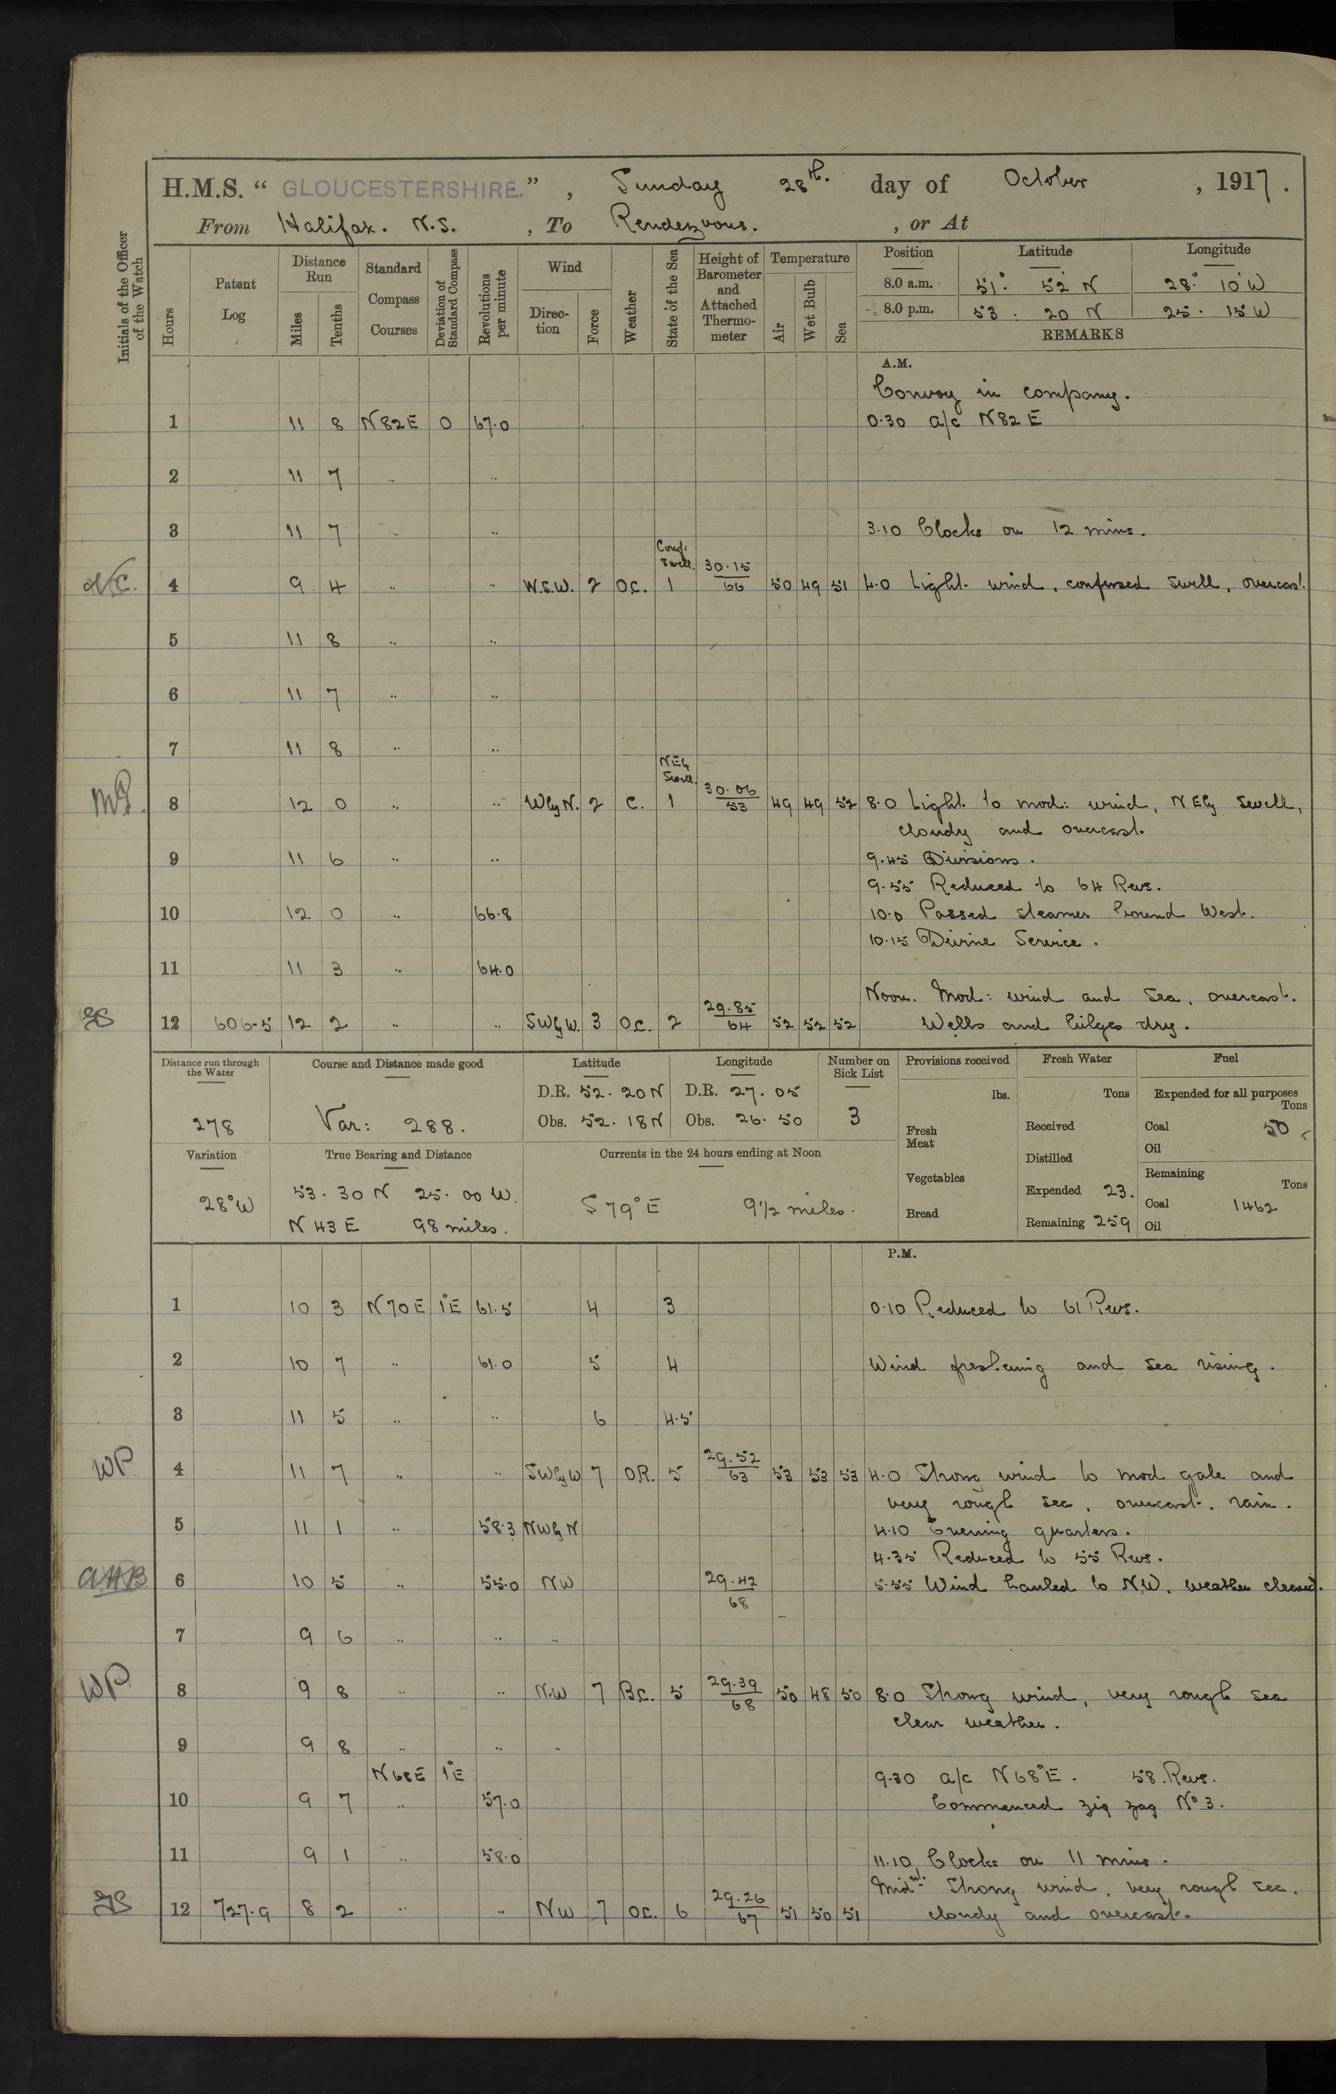 H.M.S. “ GLOUCESTERSHIRE. ” , Sunday 28th. day of October , 1917.
From Halifax. N.S. , To Rendezvous. , or At
Initials of the Officer of the Watch
Hours
Patent Log
Distance Run
Miles
Tenths
Standard Compass Courses
Deviation of Standard Compass
Revolutions per minute
Wind
Direc-tion
Force
Weather
State of the Sea
Height of Barometer and Attached Thermo-meter
Temperature
Air
Wet Bulb
Sea
Position Latitude Longitude
8.0 a.m. 51° 52' N 28° 10' W
8.0 p.m. 53 . 20 N 25 . 15' W
REMARKS
A.M.
Convoy in company.
1 11 8 N82E 0 67.0 0.30 a/c N82E
2 11 7 .. ..
3 11 7 .. .. 3.10 Clocks on 12 mins.
Conf: Swell.
V.C. 4 9 4 .. W.S.W. 2 O.C. 1 30.15 / 66 50 49 51 4.0 Light wind, confused swell, overcast.
5 11 8 .. ..
6 11 7 .. ..
7 11 8 .. ..
NEly Swell.
8 12 0 .. .. WbyN. 2 C. 1 30.06 / 53 49 49 52 8.0 Light to mod: wind, NEly Swell,
cloudy and overcast.
9 11 6 .. .. 9.45 Divisions.
9.55 Reduced to 64 Revs.
10 12 0 .. 66.8 10.0 Passed steamer bound West.
10.15 Divine Service.
11 11 3 .. 64.0
Noon. Mod: wind and Sea, overcast.
12 606.5 12 2 .. .. SWbyW. 3 O.C. 2 29.85 / 64 52 52 52 Wells and bilges dry.
Distance run through the Water
278
Course and Distance made good
Var: 288.
Latitude
D.R. 52.20N
Obs. 52.18N
Longitude
D.R. 27.05
Obs. 26.50
Number on Sick List
3
Provisions received
lbs.
Fresh Meat
Vegetables
Bread
Fresh Water
Tons
Received
Distilled
Expended 23.
Remaining 259
Fuel
Expended for all purposes
Tons
Coal 50
Oil
Remaining
Tons
Coal 1462
Oil
Variation
28° W
True Bearing and Distance
53.30 N 25.00 W.
N 43 E 98 miles.
Currents in the 24 hours ending at Noon
S 79° E 9½ miles.
P.M.
1 10 3 N70E 1°E 61.5 4 3 0.10 Reduced to 61 Revs.
2 10 7 .. 61.0 5 4 Wind freshening and sea rising.
3 11 5 .. .. 6 4.5
WP 4 11 7 .. .. SWbyW 7 O.R. 5 29.52 / 63 53 53 53 4.0 Strong wind to mod gale and
very rough sea, overcast, rain.
5 11 1 .. 58.3 NWbyN 4.10 Evening quarters.
4.35 Reduced to 55 Revs.
AHB 6 10 5 .. 55.0 NW 29.42 / 68 5.55 Wind hauled to N.W, weather cleared.
7 9 6 .. .. ..
WP 8 9 8 .. .. N.W 7 B.C. 5 29.39 / 68 50 48 50 8.0 Strong wind, very rough sea
clear weather.
9 9 8 .. .. ..
N68E 1°E 9.30 a/c N68°E. 58 Revs.
10 9 7 .. 57.0 Commenced zig zag No 3.
11 9 1 .. 58.0 11.10 Clocks on 11 mins.
Midnt. Strong wind, very rough sea.
12 727.9 8 2 .. .. NW 7 O.C. 6 29.26 / 67 51 50 51 cloudy and overcast.